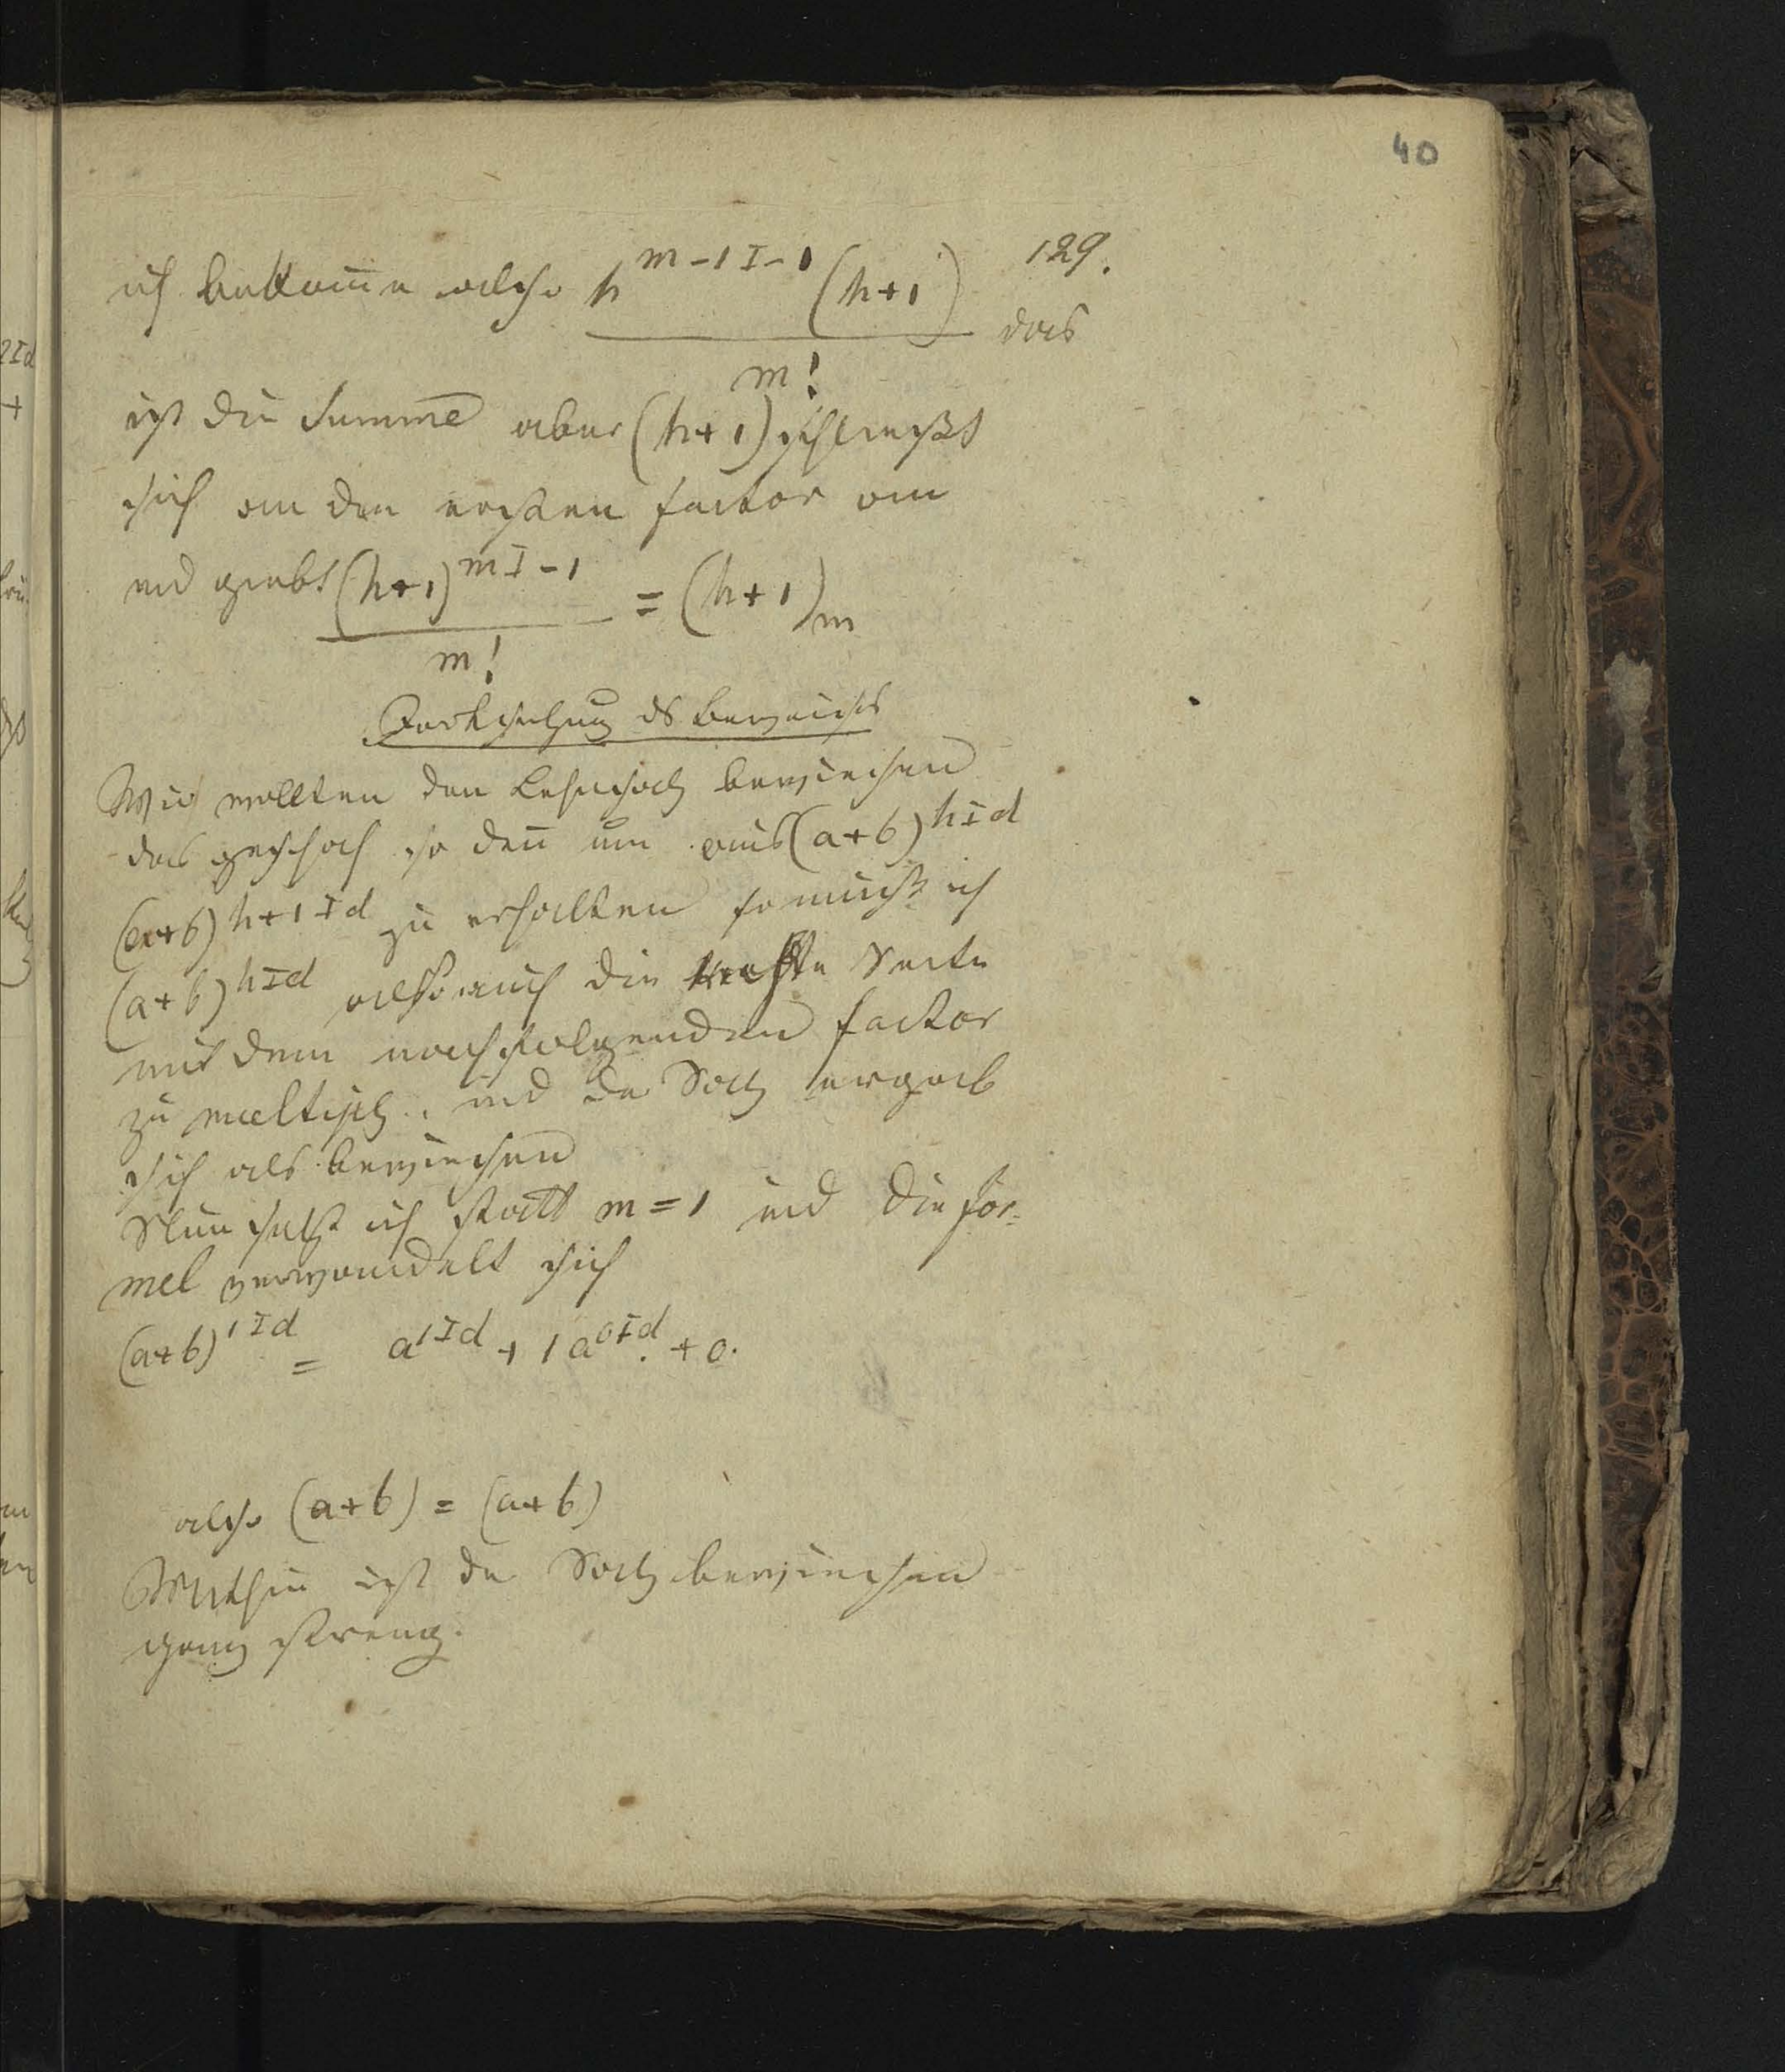 40
129.
ich bekom̄e also h^{m-1 I-1} (h+1) das
m!
ist die Summe aber (h+1) schließt
sich an den ersten factor an
und giebt (h+1)^{m I-1} = (h+1)_m
m!
Fortsetzung ds Beweises
Wir wollten den Lehrsatz beweisen
das geschah so den̄ um aus (a+b)^{h I d}
(a+b)^{h+1 I d} zu erhalten so muß ich
(a+b)^{h I d} also auch die rechte Seite
mit dem nachfolgenden factor
zu multipl. und der Satz ergab
sich als bewiesen
Nun setze ich statt m = 1 und die for=
mel verwandelt sich
(a+b)^{1 I d} = a^{1 I d} + 1 a^{0 I d}. + 0.
also (a+b) = (a+b)
Mithin ist der Satz bewiesen
ganz streng.